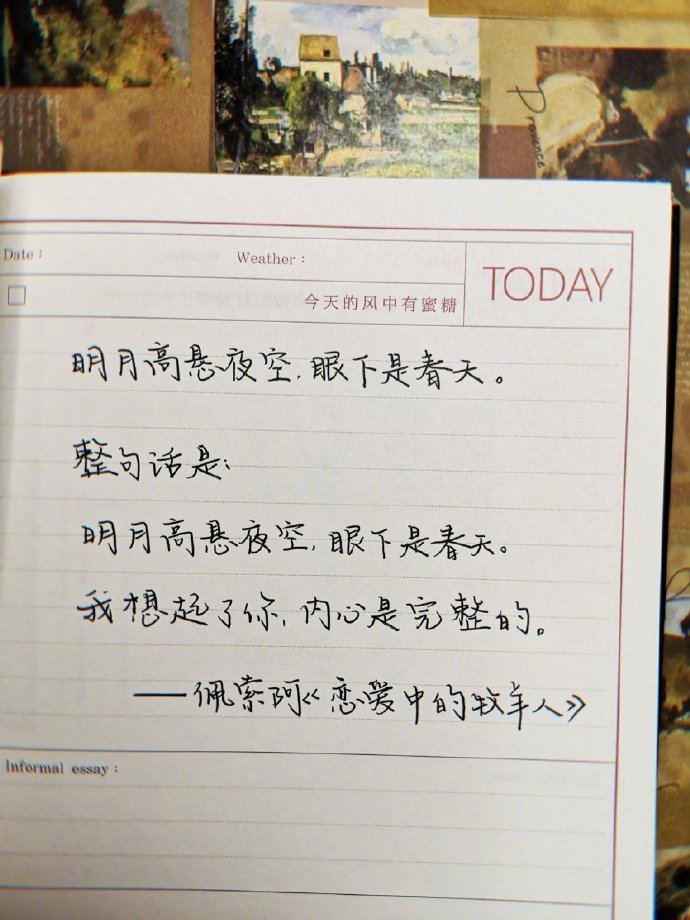 Provence
Date：
Weather：
TODAY
今天的风中有蜜糖
明月高悬夜空，眼下是春天。
整句话是：
明月高悬夜空，眼下是春天。
我想起了你，内心是完整的。
——佩索阿《恋爱中的牧羊人》
Informal essay：